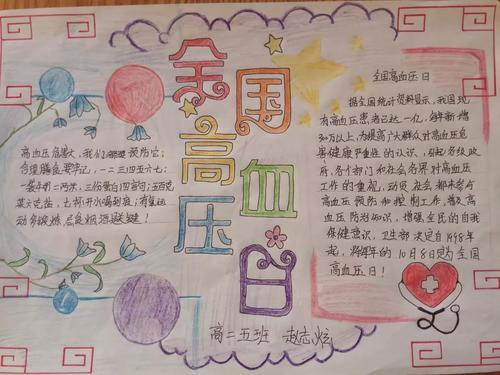 全国
高血压日
高血压危害大,我们都要预防它;
合理膳食要牢记,一二三四五六七:
一袋牛奶二两米,三份蛋白四言句;五百克
菜六克盐,七杯开水喝到底;有氧运
动多锻炼,忌烟限酒是关键!
全国高血压日
据全国统计资料显示,我国现
有高血压患者已达一亿,每年新增
300万以上,为提高广大群众对高血压危
害健康严重性的认识,引起各级政
府,各个部门和社会各界对高血压
工作的重视,动员社会都来参与
高血压预防和控制工作,普及高
血压防治知识,增强全民的自我
保健意识,卫生部决定自1998年
起,将每年的10月8日定为全国
高血压日!
高二五班 赵志炫